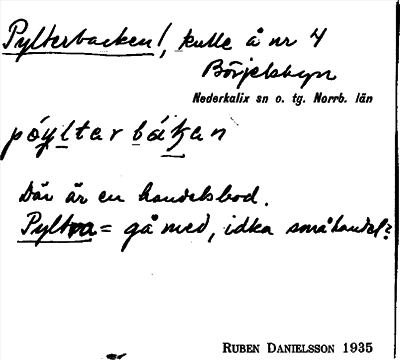 Pylterbacken!, kulle å nr 4
Börjelsbyn
Nederkalix sn o. tg. Norrb. län
póyltarbákan
Där är en handelsbod.
Pyltra = gå med, idka småhandel?
RUBEN DANIELSSON 1935